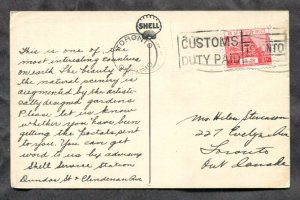 SHELL
TORONTO
CUSTOMS
DUTY PAID
This is one of the
most interesting countries
on earth. The beauty of
the natural scenery is
augmented by the artisti-
cally designed gardens.
Please let us know
whether you have been
getting the postals sent
to you. You can get
word to us by advising
Shell Service Station
Dundas St & Clendenan Ave
Miss Helen Stevenson
227 Evelyn Ave
Toronto
Ont Canada